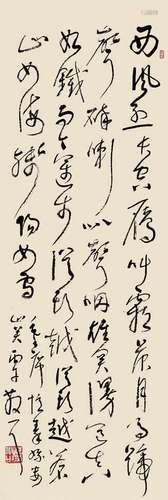 西風烈長空雁叫霜晨月馬蹄
聲碎喇叭聲咽雄關漫道真
如鐵而今邁步從頭越從頭越蒼
山如海殘陽如血
毛主席憶秦娥婁
山關